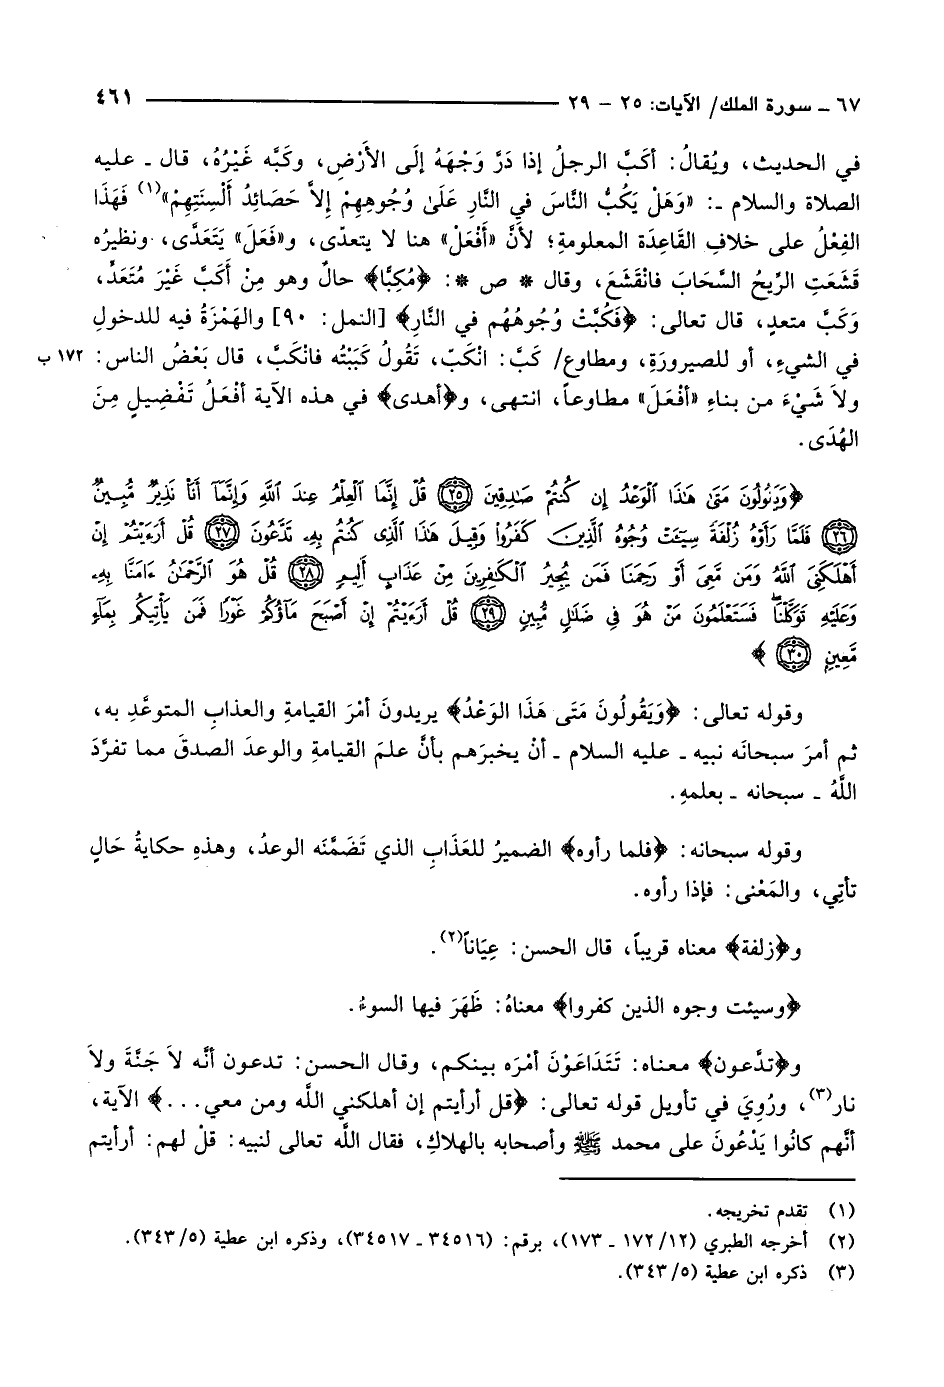 ٦٧ ـ سورة الملك/ الآيات: ٢٥ - ٢٩ ٤٦١
في الحديث، ويُقالُ: أكَبَّ الرجلُ إذا دَرَّ وَجْهَهُ إلَى الأَرْضِ، وكَبَّه غَيْرُهُ، قال ـ عليه
الصلاة والسلام ـ: «وَهَلْ يَكُبُّ النَّاسَ في النَّارِ عَلَىٰ وُجُوهِهِمْ إلاَّ حَصَائِدُ ألْسِنَتِهِمْ»(١) فَهَذَا
الفِعْلُ على خلافِ القَاعِدَة المعلومةِ؛ لأنَّ «أَفْعَلَ» هنا لا يتعدّى، و«فَعَلَ» يَتَعَدَّى، ونظيرُه
قَشَعَتِ الرِّيحُ السَّحَابَ فانْقَشَعَ، وقال * ص *: ﴿مُكِبًّا﴾ حالٌ وهو مِنْ أكَبَّ غَيْرَ مُتَعَدٍّ،
وَكَبَّ متعدٍ، قال تعالى: ﴿فَكُبَّتْ وُجُوهُهُم في النَّارِ﴾ [النمل: ٩٠] والهَمْزَةُ فيه للدخولِ
في الشيءِ، أو للصيرورَةِ، ومطاوع/ كَبَّ: انْكَبّ، تَقُولُ كَبَبْتُه فانْكَبَّ، قال بَعْضُ الناس: ١٧٢ ب
ولاَ شَيْءَ من بناءِ «أفْعَلَ» مطاوعاً، انتهى، و﴿أهدى﴾ في هذه الآية أفْعَلُ تَفْضِيلٍ مِنَ
الهُدَى.
﴿وَيَقُولُونَ مَتَىٰ هَٰذَا ٱلْوَعْدُ إِن كُنتُمْ صَٰدِقِينَ ٢٥ قُلْ إِنَّمَا ٱلْعِلْمُ عِندَ ٱللَّهِ وَإِنَّمَآ أَنَا۠ نَذِيرٌ مُّبِينٌ
٢٦ فَلَمَّا رَأَوْهُ زُلْفَةً سِيٓـَٔتْ وُجُوهُ ٱلَّذِينَ كَفَرُوا۟ وَقِيلَ هَٰذَا ٱلَّذِى كُنتُم بِهِۦ تَدَّعُونَ ٢٧ قُلْ أَرَءَيْتُمْ إِنْ
أَهْلَكَنِىَ ٱللَّهُ وَمَن مَّعِىَ أَوْ رَحِمَنَا فَمَن يُجِيرُ ٱلْكَٰفِرِينَ مِنْ عَذَابٍ أَلِيمٍ ٢٨ قُلْ هُوَ ٱلرَّحْمَٰنُ ءَامَنَّا بِهِۦ
وَعَلَيْهِ تَوَكَّلْنَا ۖ فَسَتَعْلَمُونَ مَنْ هُوَ فِى ضَلَٰلٍ مُّبِينٍ ٢٩ قُلْ أَرَءَيْتُمْ إِنْ أَصْبَحَ مَآؤُكُمْ غَوْرًا فَمَن يَأْتِيكُم بِمَآءٍ
مَّعِينٍ ٣٠﴾
وقوله تعالى: ﴿وَيَقُولُونَ مَتَى هَذَا الوَعْدُ﴾ يريدونَ أمْرَ القيامةِ والعذابِ المتوعَّدِ به،
ثم أمرَ سبحانَه نبيه ـ عليه السلام ـ أنْ يخبرَهم بأنَّ علمَ القيامةِ والوعدَ الصدقَ مما تفرَّدَ
اللَّهُ ـ سبحانه ـ بعلمهِ.
وقوله سبحانه: ﴿فلما رأوه﴾ الضميرُ للعَذَابِ الذي تَضَمَّنَه الوعدُ، وهذهِ حكايةُ حَالٍ
تأتِي، والمَعْنى: فإذا رأوه.
و﴿زلفة﴾ معناه قريباً، قال الحسن: عِيَاناً(٢).
﴿وسيئت وجوه الذين كفروا﴾ معناهُ: ظَهَرَ فيها السوءُ.
و﴿تدَّعون﴾ معناه: تَتَدَاعَوْنَ أمْرَه بينكم، وقال الحسن: تدعون أنَّه لاَ جَنَّةَ ولاَ
نار(٣)، ورُوِيَ في تأويل قوله تعالى: ﴿قل أرأيتم إن أهلكني اللَّه ومن معي...﴾ الآية،
أنَّهم كانُوا يَدْعُونَ على محمد ﷺ وأصحابه بالهلاكِ، فقال اللَّه تعالى لنبيه: قلْ لهم: أرأيتم
(١) تقدم تخريجه.
(٢) أخرجه الطبري (١٧٢/١٢ ـ ١٧٣)، برقم: (٣٤٥١٦ ـ ٣٤٥١٧)، وذكره ابن عطية (٣٤٣/٥).
(٣) ذكره ابن عطية (٣٤٣/٥).